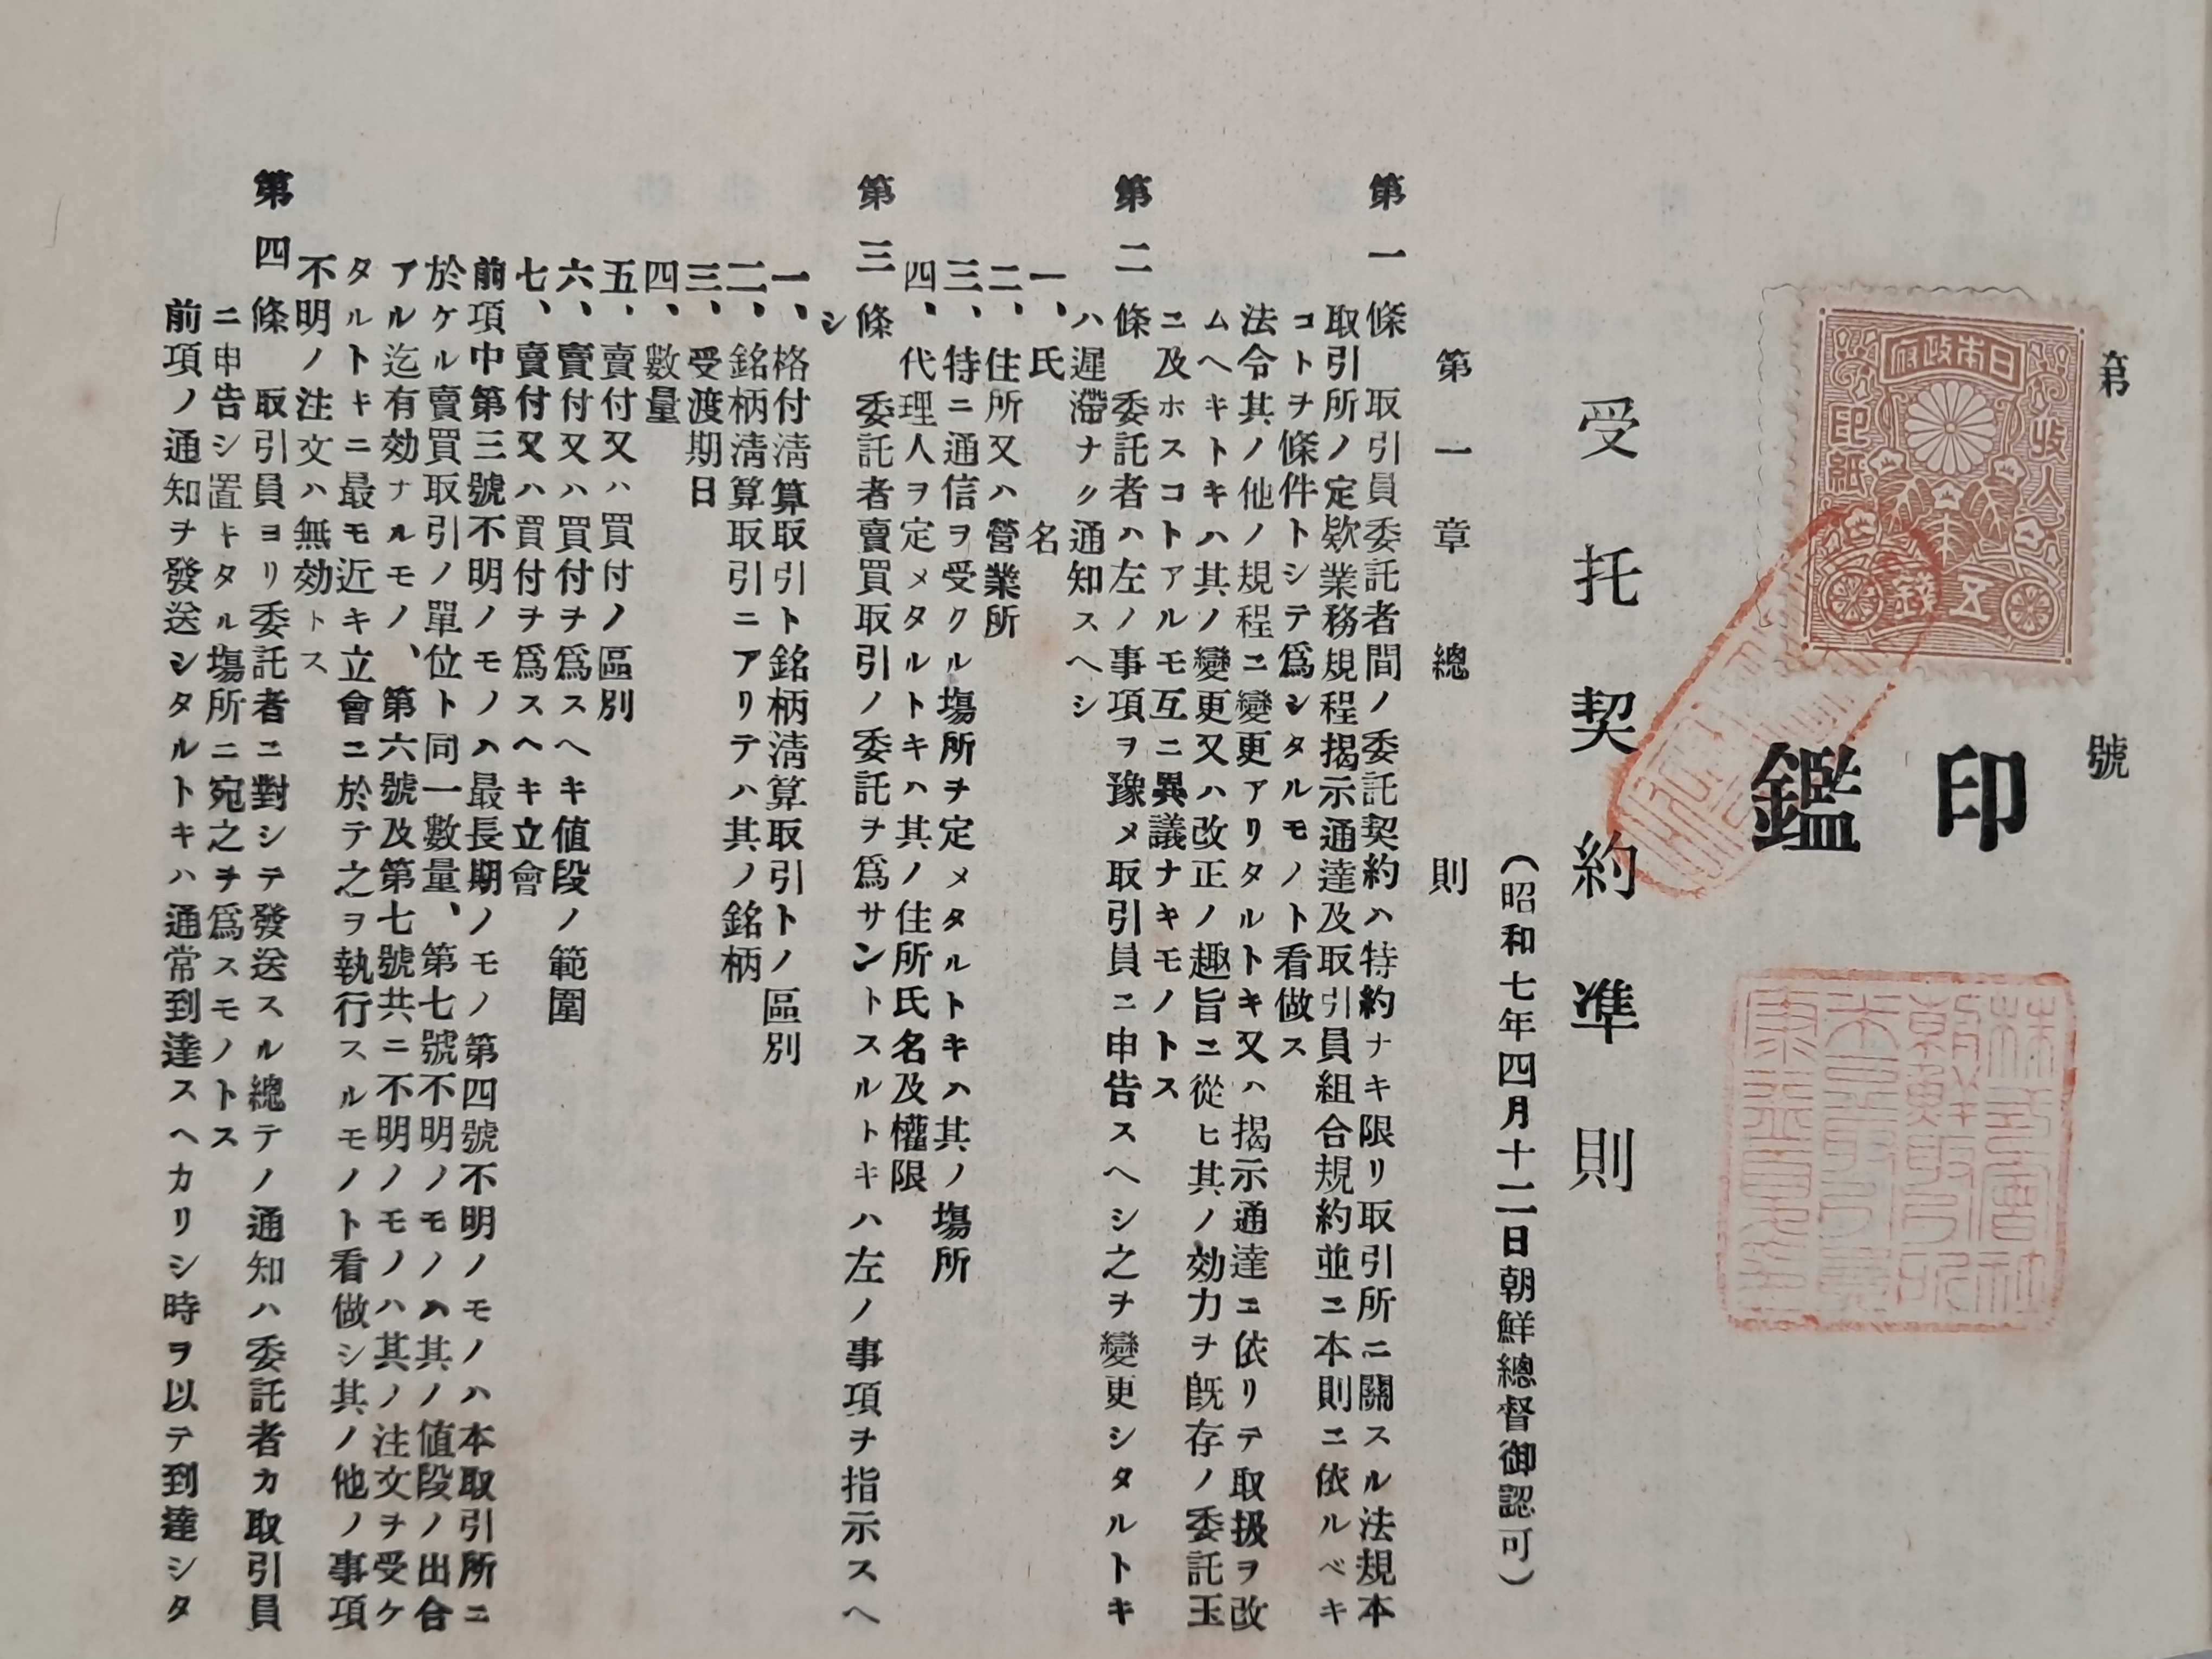 第　號
日本政府
收入
印紙
五錢
印鑑
株式會社
朝鮮取引所
受托契約準則
（昭和七年四月十二日朝鮮總督御認可）
第一章　總則
第一條　取引員委託者間ノ委託契約ハ特約ナキ限リ取引所ニ關スル法規本
取引所ノ定欵業務規程揭示通達及取引員組合規約並ニ本則ニ依ルベキ
コトヲ條件トシテ爲シタルモノト看做ス
法令其ノ他ノ規程ニ變更アリタルトキ又ハ揭示通達ニ依リテ取扱ヲ改
ムヘキトキハ其ノ變更又ハ改正ノ趣旨ニ從ヒ其ノ効力ヲ旣存ノ委託玉
ニ及ホスコトアルモ互ニ異議ナキモノトス
第二條　委託者ハ左ノ事項ヲ豫メ取引員ニ申告スヘシ之ヲ變更シタルトキ
ハ遲滯ナク通知スヘシ
一、氏名
二、住所又ハ營業所
三、特ニ通信ヲ受クル塲所ヲ定メタルトキハ其ノ塲所
四、代理人ヲ定メタルトキハ其ノ住所氏名及權限
第三條　委託者賣買取引ノ委託ヲ爲サントスルトキハ左ノ事項ヲ指示スヘ
シ
一、格付淸算取引ト銘柄淸算取引トノ區別
二、銘柄淸算取引ニアリテハ其ノ銘柄
三、受渡期日
四、數量
五、賣付又ハ買付ノ區別
六、賣付又ハ買付ヲ爲スヘキ値段ノ範圍
七、賣付又ハ買付ヲ爲スヘキ立會
前項中第三號不明ノモノハ最長期ノモノ第四號不明ノモノハ本取引所ニ
於ケル賣買取引ノ單位ト同一數量、第七號不明ノモノハ其ノ値段ノ出合
アル迄有効ナルモノ、第六號及第七號共ニ不明ノモノハ其ノ注文ヲ受ケ
タルトキニ最モ近キ立會ニ於テ之ヲ執行スルモノト看做シ其ノ他ノ事項
不明ノ注文ハ無効トス
第四條　取引員ヨリ委託者ニ對シテ發送スル總テノ通知ハ委託者カ取引員
ニ申告シ置キタル塲所ニ宛之ヲ爲スモノトス
前項ノ通知ヲ發送シタルトキハ通常到達スヘカリシ時ヲ以テ到達シタ